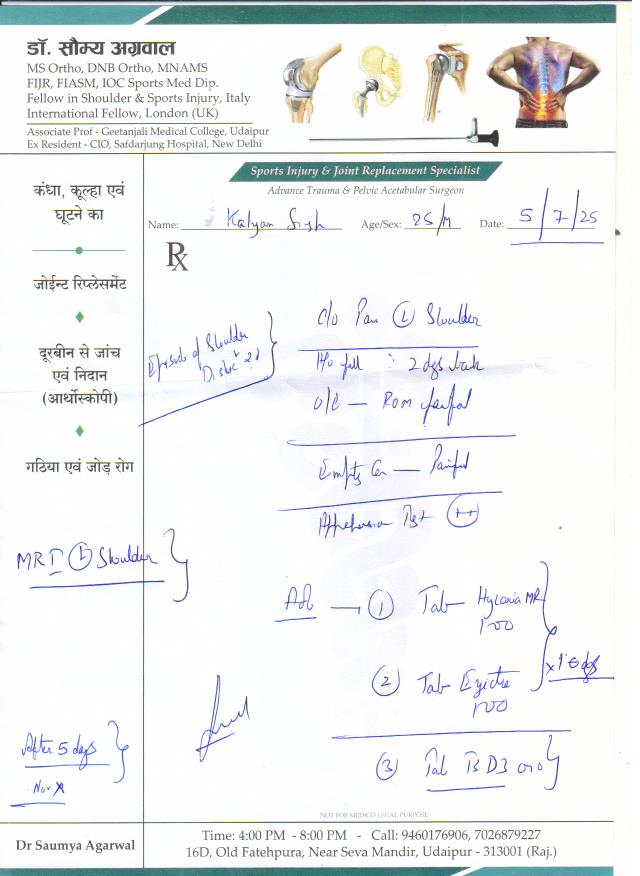 डॉ. सौम्य अग्रवाल
MS Ortho, DNB Ortho, MNAMS
FIJR, FIASM, IOC Sports Med Dip.
Fellow in Shoulder & Sports Injury, Italy
International Fellow, London (UK)
Associate Prof - Geetanjali Medical College, Udaipur
Ex Resident - CIO, Safdarjung Hospital, New Delhi
Sports Injury & Joint Replacement Specialist
Advance Trauma & Pelvic Acetabular Surgeon
Name: Kalyan Singh Age/Sex: 25/M Date: 5/7/25
Rx
कंधा, कूल्हा एवं
घूटने का
जोईन्ट रिप्लेसमेंट
दूरबीन से जांच
एवं निदान
(आर्थोस्कोपी)
गठिया एवं जोड़ रोग
Episode of Shoulder
C/o Pain (L) Shoulder
H/o fall 2 days back
O/E — ROM painful
Empty Can — Painful
Apprehension Test (++)
MRI (L) Shoulder
Adv → (1) Tab
MR
100
(2) Tab
100
(3) Tab D3
After 5 days
NOT FOR MEDICO LEGAL PURPOSE
Dr Saumya Agarwal
Time: 4:00 PM - 8:00 PM - Call: 9460176906, 7026879227
16D, Old Fatehpura, Near Seva Mandir, Udaipur - 313001 (Raj.)